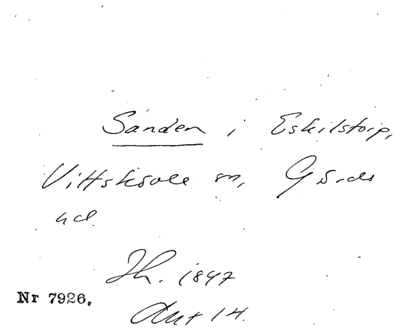 Sanden i Eskilstorp,
Vittskövle sn, Gärds
hd.
Jh. 1847
Nr 7926.
Akt 14.